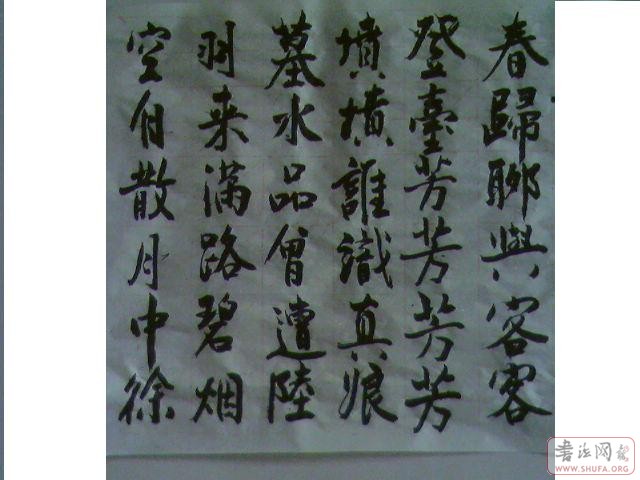 春歸聊與客客
登臺芳芳芳芳
墳墳誰識真娘
墓水品曾遭陸
羽来滿路碧烟
空自散月中徐
書法网
WWW.SHUFA.ORG